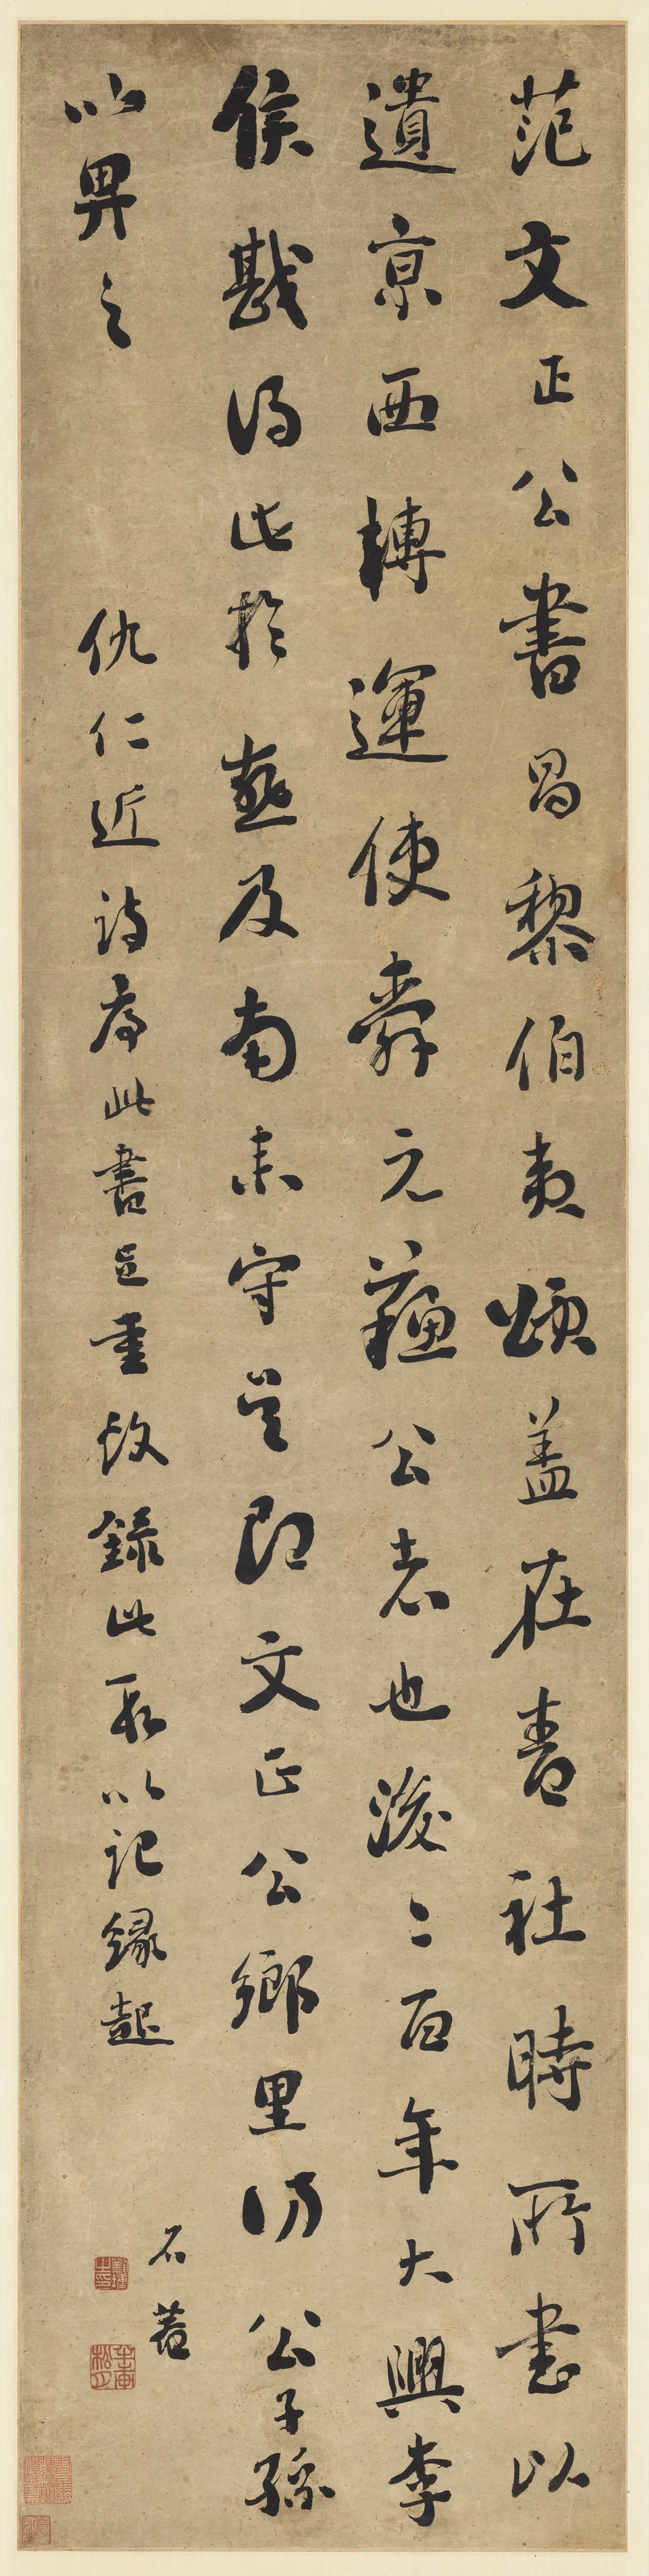 范文正公書昌黎伯夷頌蓋在青社時所書以
遺京西轉運使舜元蘇公者也後二百年大興李
侯戡得此於燕及南來守吳即文正公鄉里訪公子孫
以畀之
仇仁近詩序此書之重故錄此段以記緣起
石菴